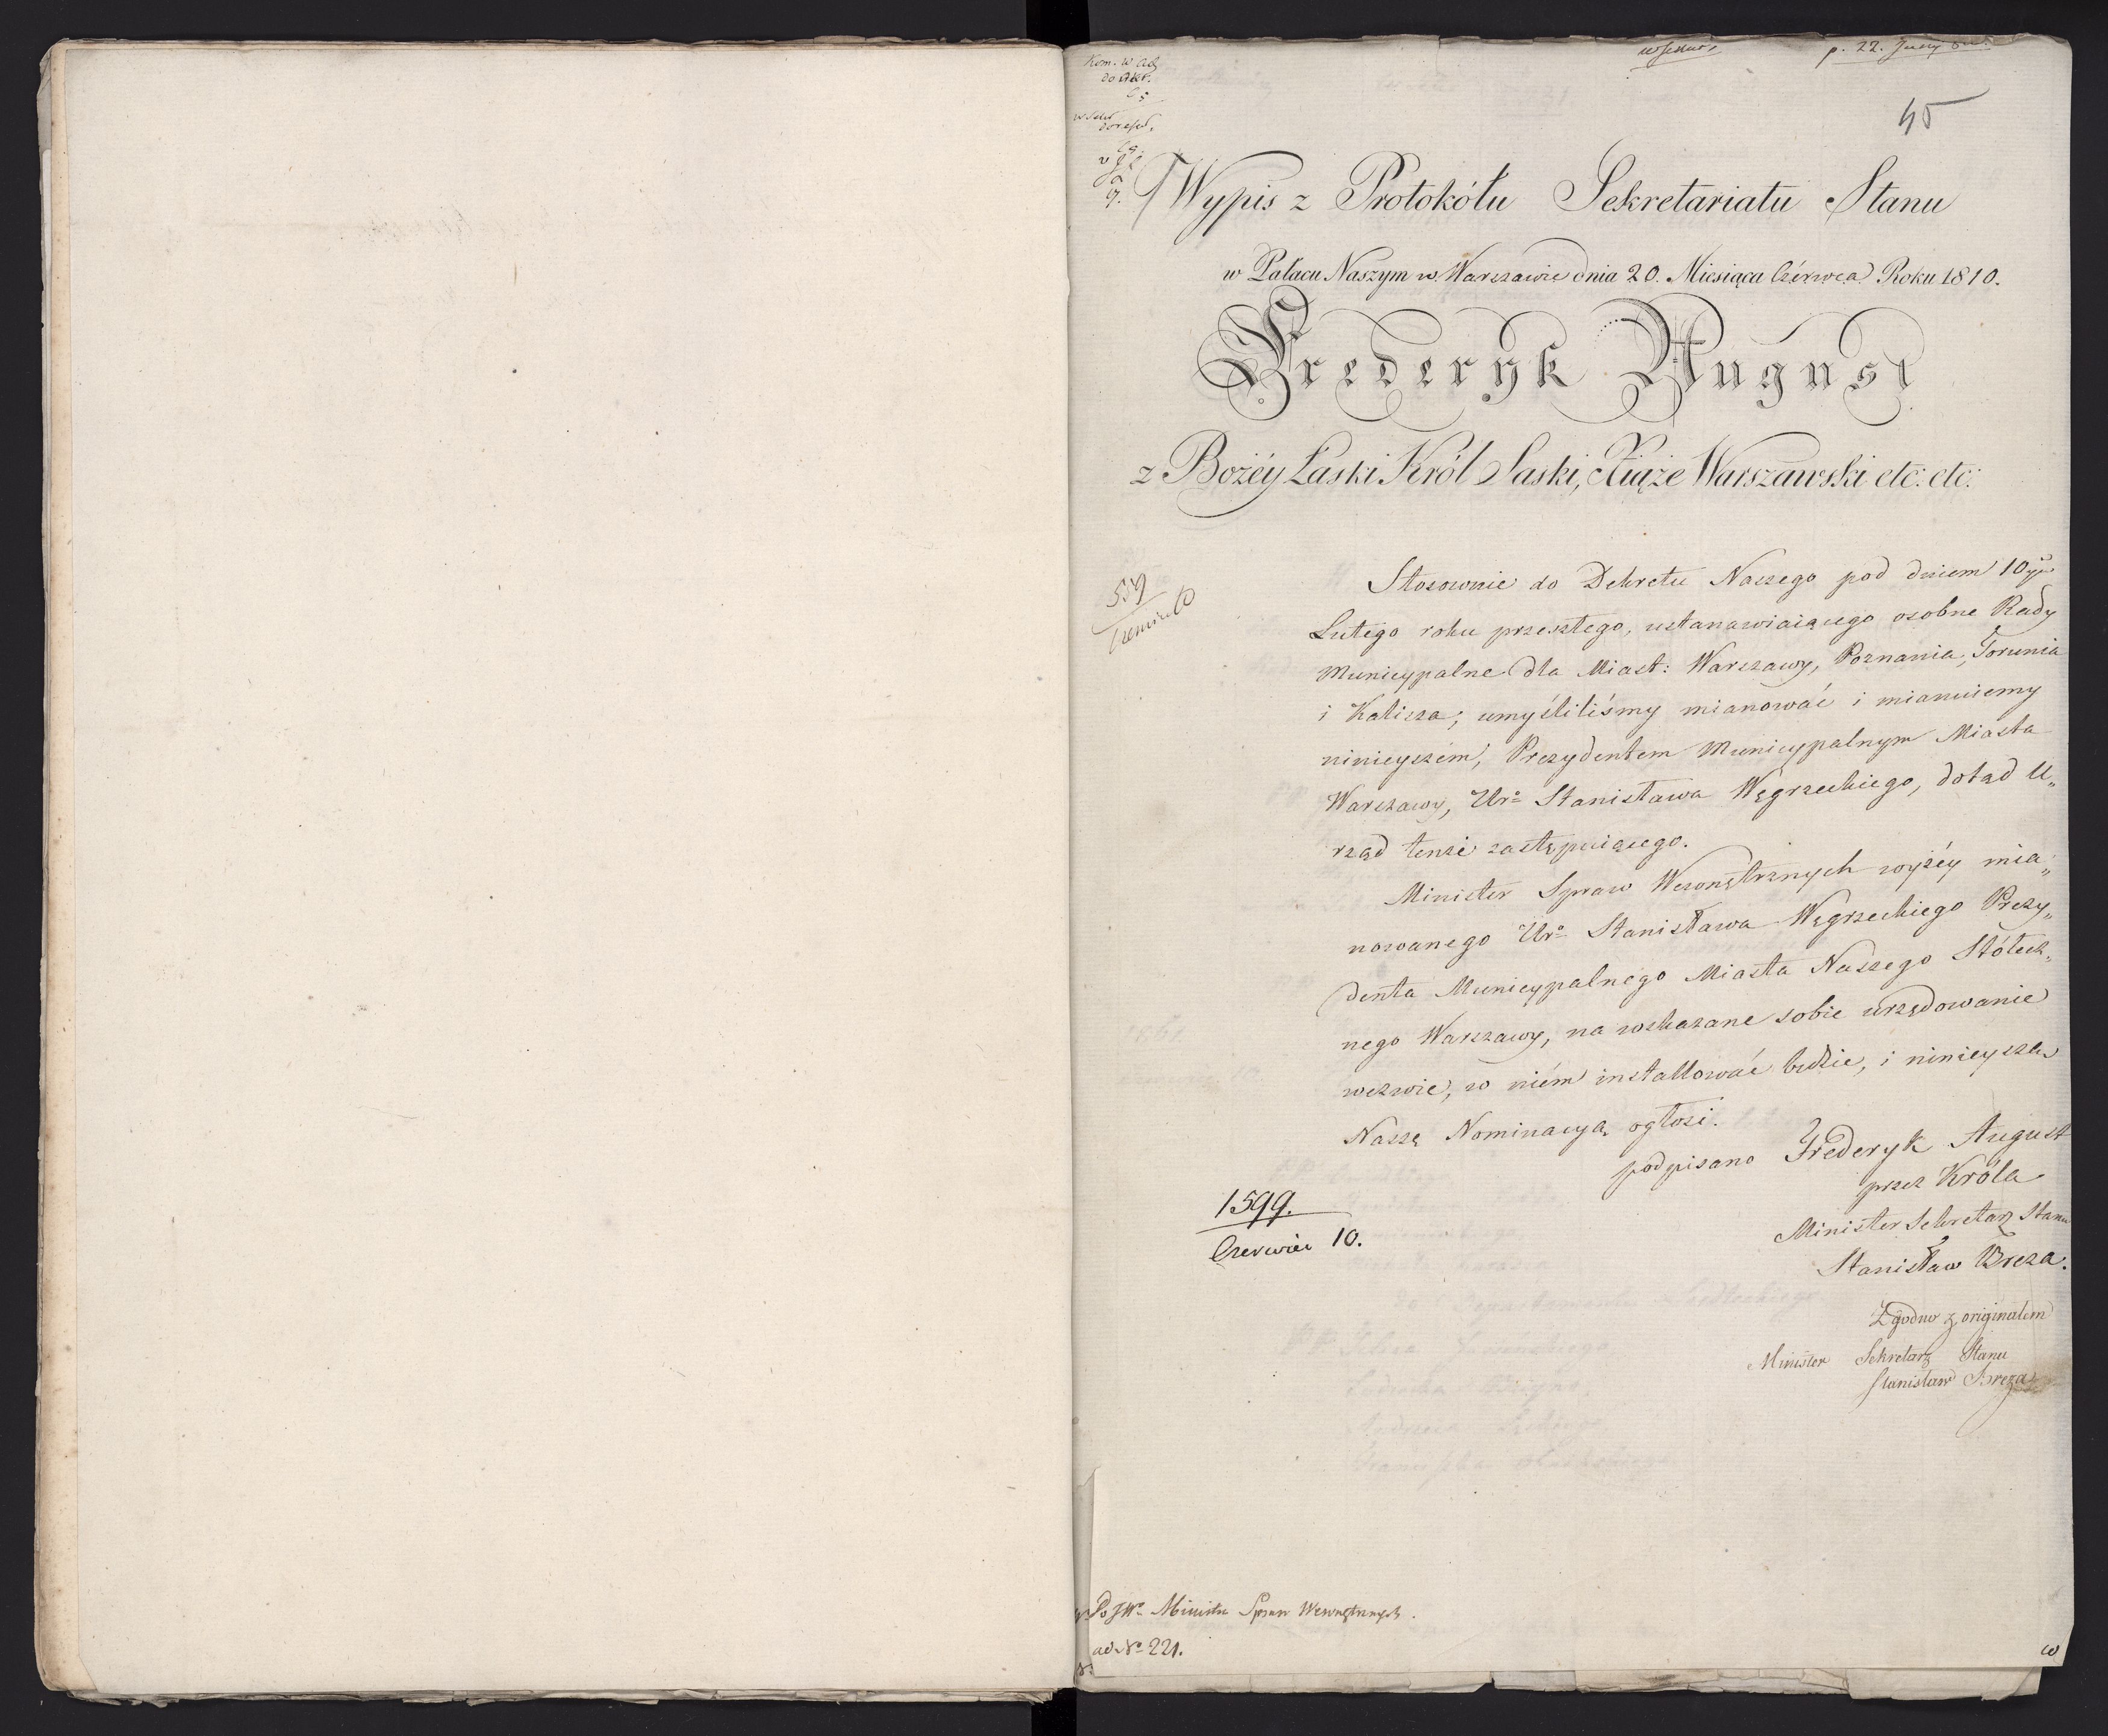 Kom. w Adj
p. 22. Junij
45
Wypis z Protokółu Sekretariatu Stanu
w Pałacu Naszym w Warszawie dnia 20. Miesiąca Czérwca Roku 1810.
Frederyk August
z Bożéy Łaski Król Saski, Xiąże Warszawski etc: etc:
559
Stosownie do Dekretu Naszego pod dniem 10go
Lutego roku przeszłego, ustanawiaiącego osobne Rady
Municypalne dla Miast: Warszawy, Poznania, Torunia
i Kalisza; umyśliliśmy mianować i mianuiemy
ninieyszém, Prezydentem Municypalnym Miasta
Warszawy, Uro Stanisława Węgrzeckiego, dotąd U„
rząd tenże zastępuiącego.
Minister Spraw Wewnętrznych wyżéy mia„
nowanego Uro Stanisława Węgrzeckiego Prezy„
denta Municypalnego Miasta Naszego Stółecz„
nego Warszawy, na wskazane sobie urzędowanie
wezwie, w niém installować będzie, i ninieyszą
Naszę Nominacyą ogłosi.
podpisano Frederyk August
przez Króla
Minister Sekretarz Stanu
Stanisław Breza.
1599.
Czerwiec 10.
Zgodno z originałem
Minister Sekretarz Stanu
Stanisław Breza
Do JWo Ministra Spraw Wewnętrznych.
ad No 221.